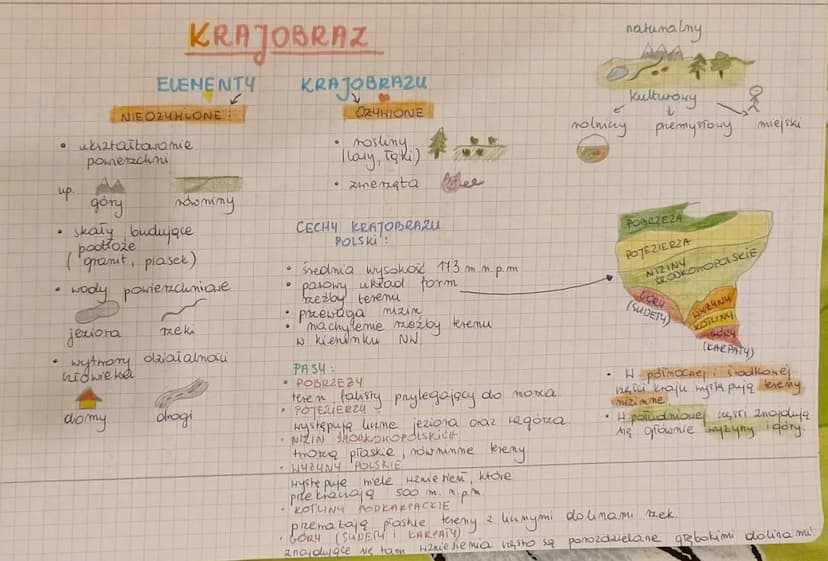 KRAJOBRAZ
ELEMENTY KRAJOBRAZU
NIEOŻYWIONE:
• ukształtowanie
powierzchni
np.
góry
równiny
• skały budujące
podłoże
(granit, piasek)
• wody powierzchniowe
jeziora
rzeki
• wytwory działalności
człowieka
domy
drogi
OŻYWIONE
• rośliny
(lasy, łąki)
• zwierzęta
CECHY KRAJOBRAZU
POLSKI:
• średnia wysokość 173 m.n.p.m
• pasowy układ form
rzeźby terenu
• przewaga nizin
• nachylenie rzeźby terenu
w kierunku NW.
PASY:
• POBRZEŻY
teren falisty przylegający do morza.
• POJEZIERZY
występują liczne jeziora oraz wzgórza.
• NIZIN ŚRODKOWOPOLSKICH
tworzą płaskie, równinne tereny
• WYŻYNY POLSKIE
występuje wiele wzniesień, które
przekraczają 500 m. n.p.m
• KOTLINY PODKARPACKIE
przeważają płaskie tereny z licznymi dolinami rzek.
• GÓRY (SUDETY i KARPATY)
znajdujące się tam wzniesienia często są porozdzielane głębokimi dolinami
naturalny
kulturowy
rolniczy
przemysłowy
miejski
POBRZEŻA
POJEZIERZA
NIZINY
ŚRODKOWOPOLSKIE
GÓRY
(SUDETY)
WYŻYNY
KOTLINY
GÓRY
(KARPATY)
• W północnej i środkowej
części kraju występują tereny
nizinne
• W południowej części znajdują
się głównie wyżyny i góry.